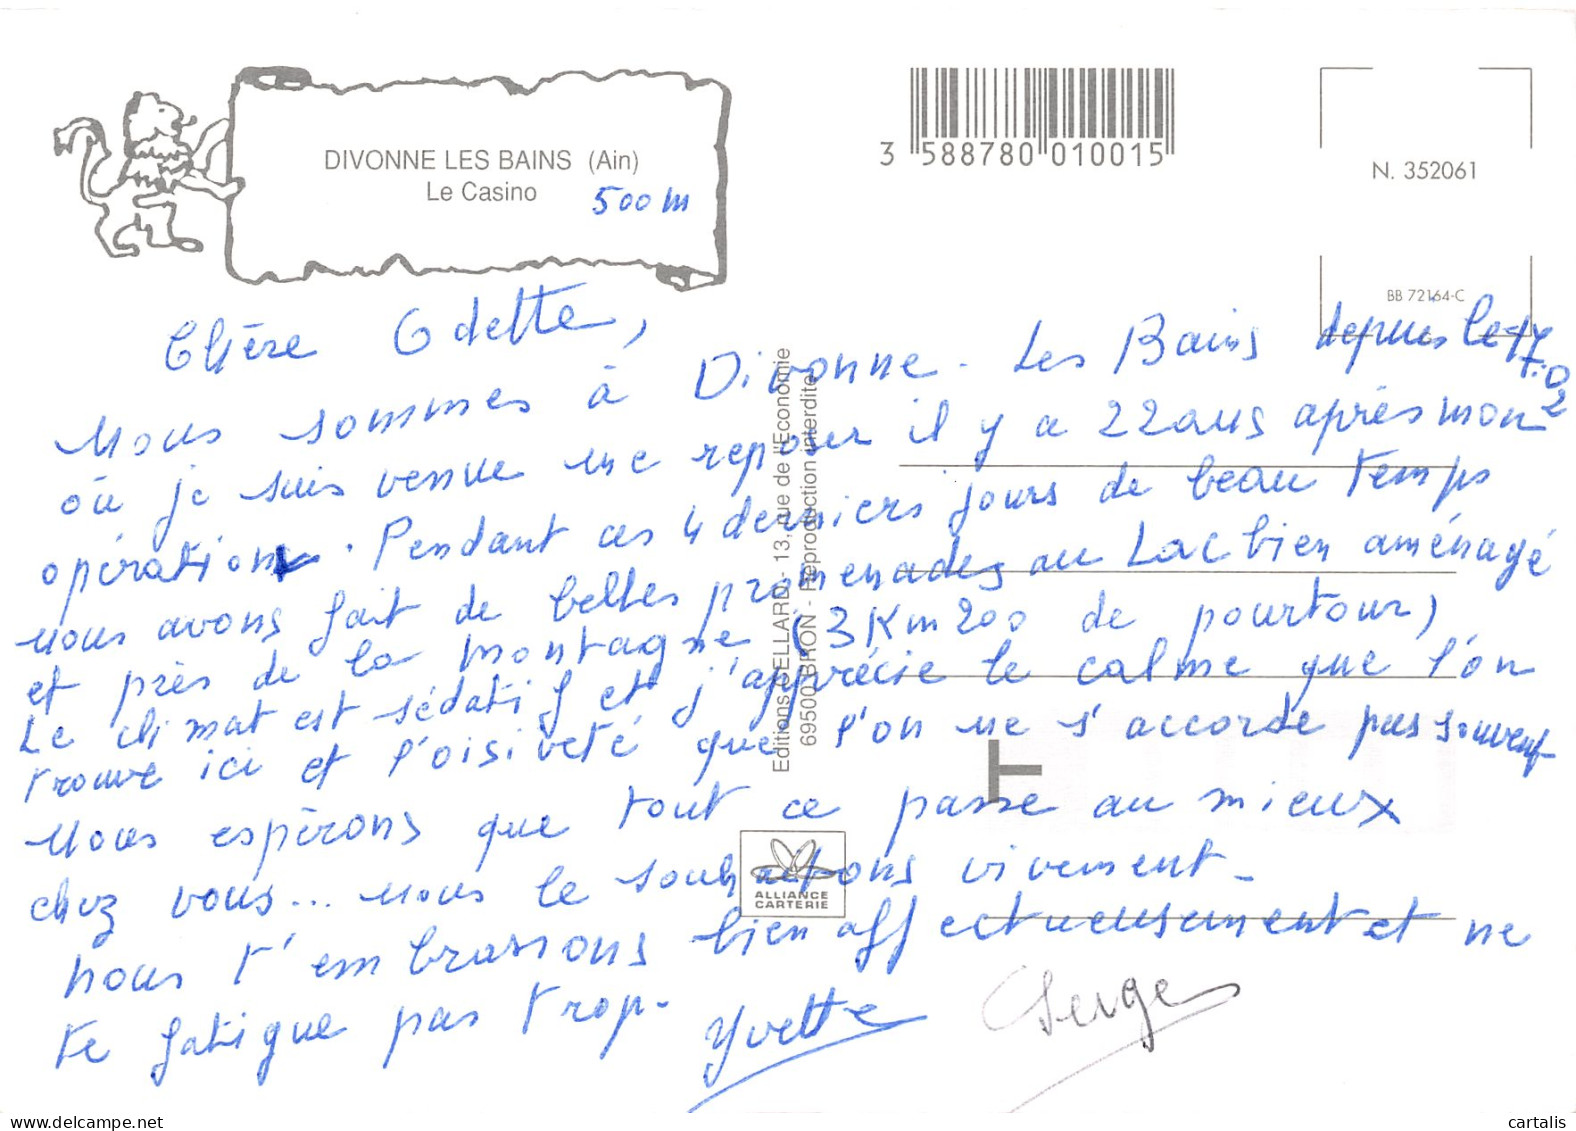 DIVONNE LES BAINS (Ain)
Le Casino
500 m
3 588780 010015
N. 352061
BB 72164-C
Editions CELLARD - 13, rue de l'Economie
69500 BRON - Reproduction interdite
Chère Odette,
Nous sommes à Divonne-Les Bains depuis le 17
où je suis venue me reposer il y a 22 ans après mon
opération. Pendant ces 4 derniers jours de beau temps
nous avons fait de belles promenades au Lac bien aménagé
et près de la montagne (3 Km 200 de pourtour)
Le climat est sédatif et j'apprécie le calme que l'on
trouve ici et l'oisiveté que l'on ne s'accorde pas souvent
Nous espérons que tout ce passe au mieux
chez vous... nous le souhaitons vivement -
nous t'embrassons bien affectueusement et ne
te fatigue pas trop -
Yvette Serge
ALLIANCE
CARTERIE
cartalis